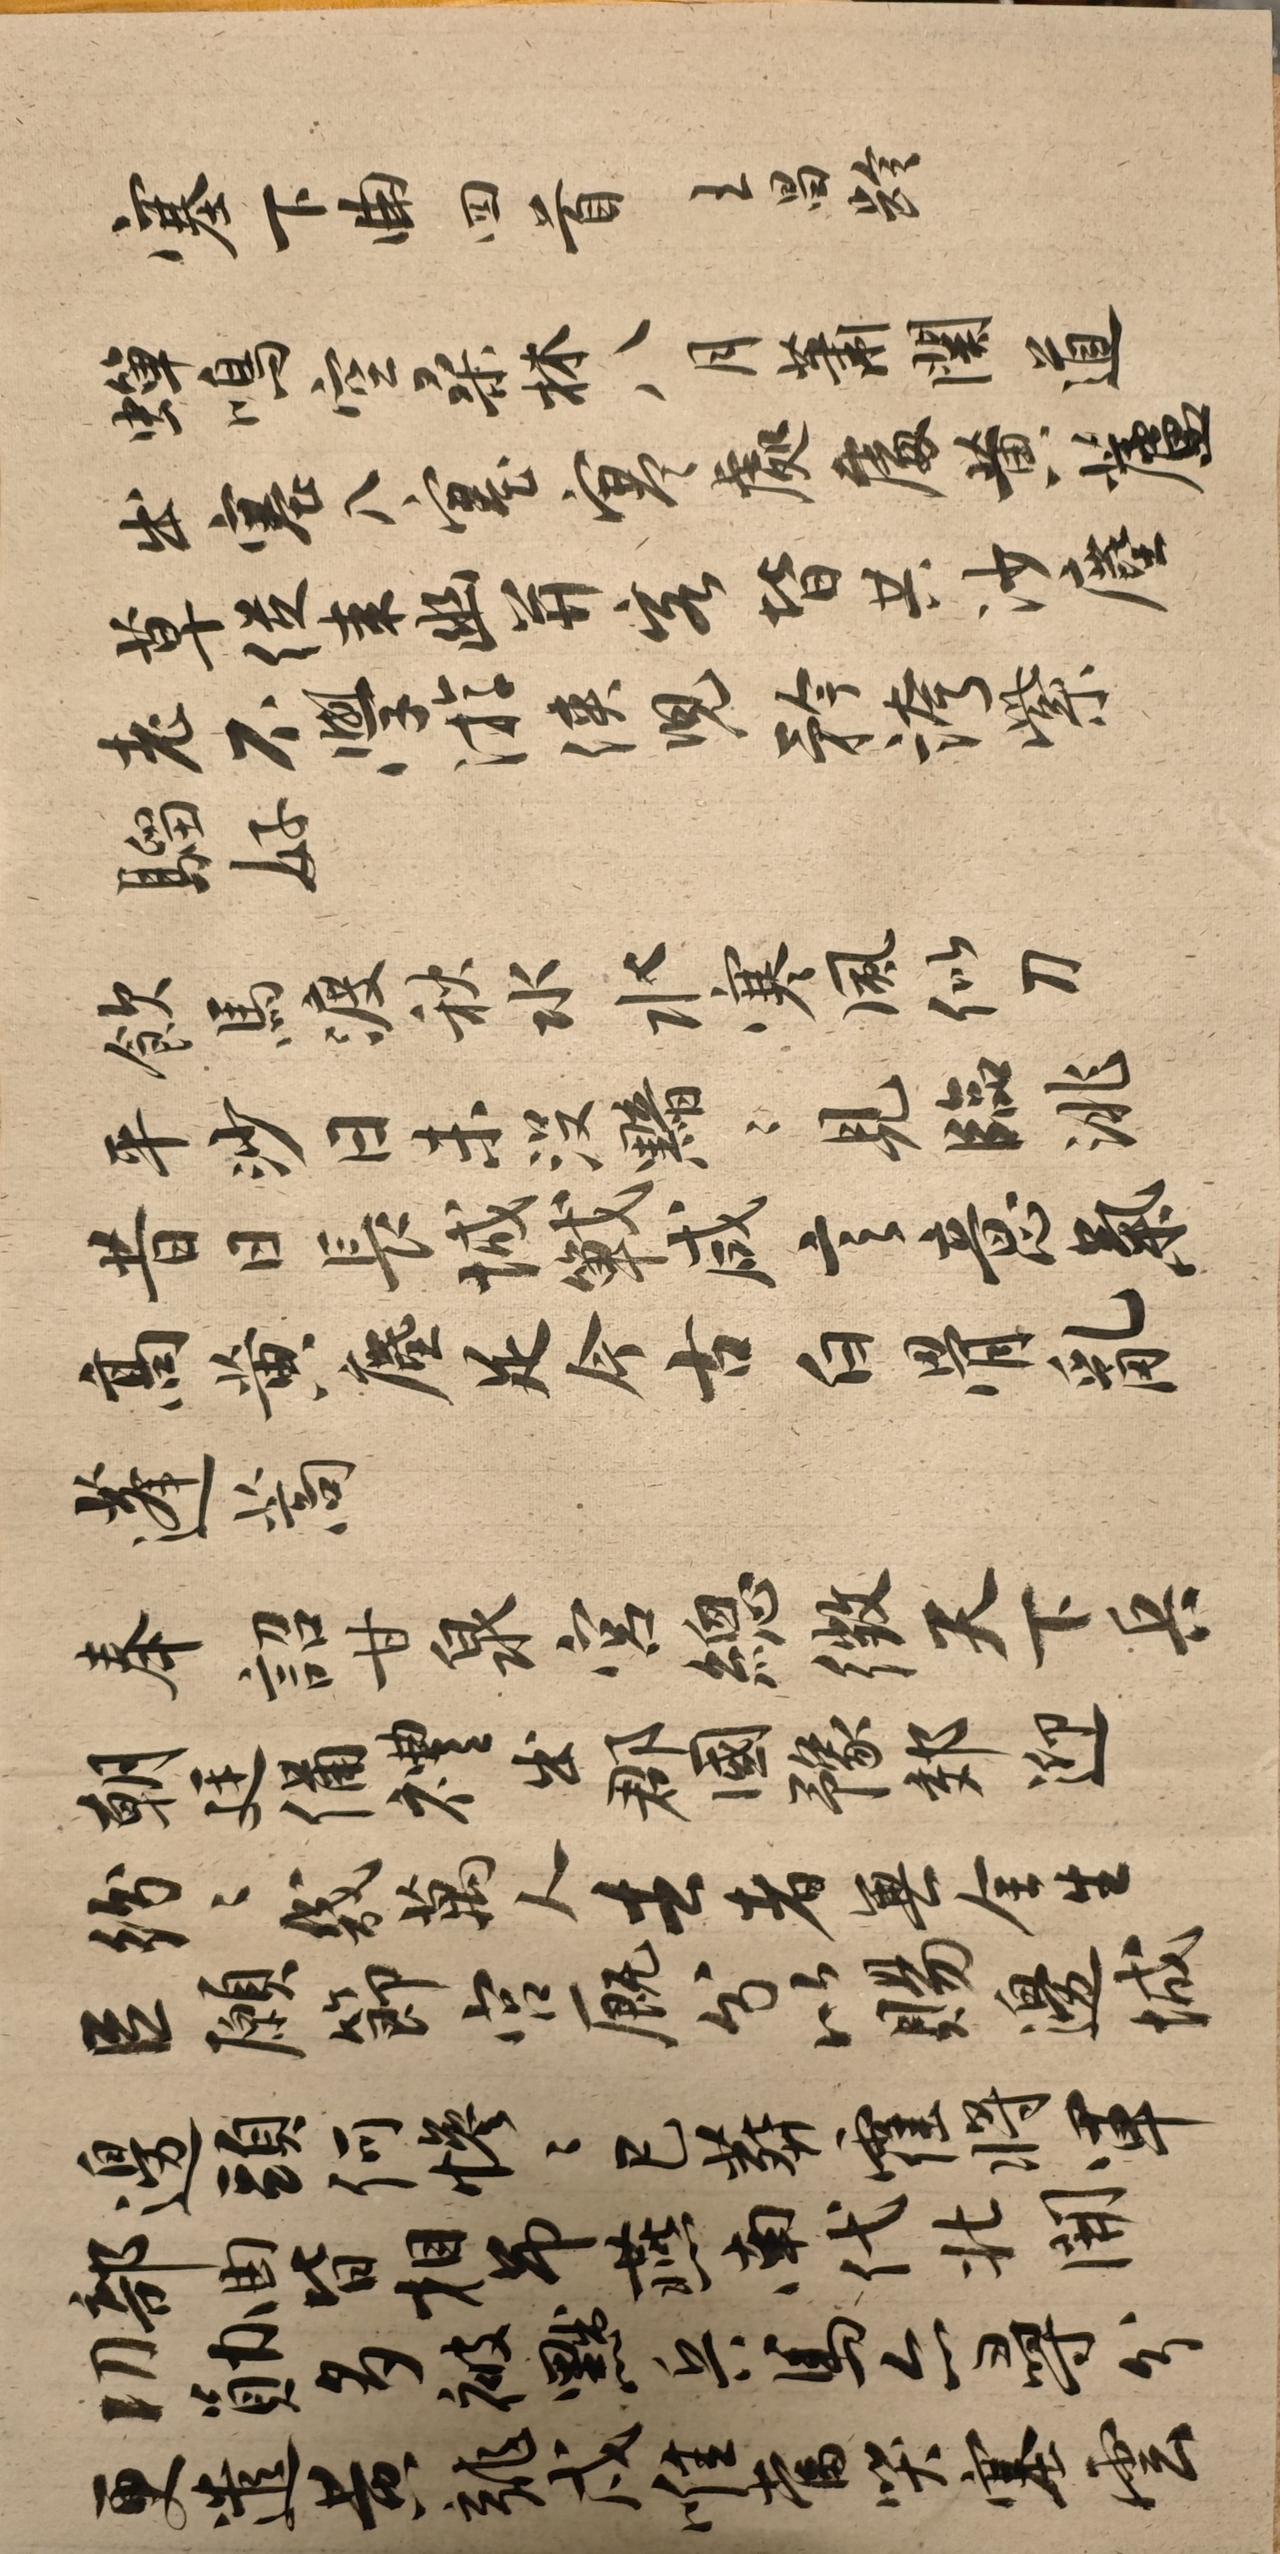 塞下曲四首 王昌齡
蟬鳴空桑林八月蕭關道
出塞入塞寒處處黃蘆
草從來幽并客皆共沙塵
老不學游俠兒矜誇紫
騮好
飲馬渡秋水水寒風似刀
平沙日未沒黯〻見臨洮
昔日長城戰咸言意氣
高黃塵足今古白骨亂
蓬蒿
奉詔甘泉宮總徵天下兵
朝廷備禮出郡國豫郊迎
紛〻幾萬人去者無全生
臣願節宮厩分以賜邊城
邊頭何慘〻已葬霍將軍
部曲皆相弔燕南代北聞
功勛多被黜兵馬亦尋分
更遣黃龍戍唯當哭塞雲